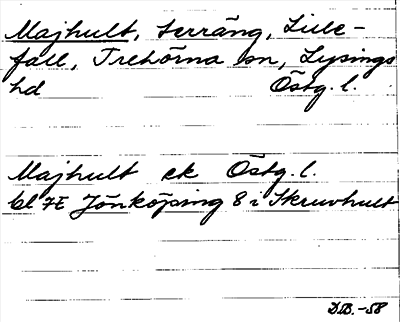 Majhult, terräng, Lille-
fall, Trehörna sn, Lysings
hd Östg. l.
Majhult ek Östg. l.
bl 7E Jönköping 8 i Skruvhult
DB.-58